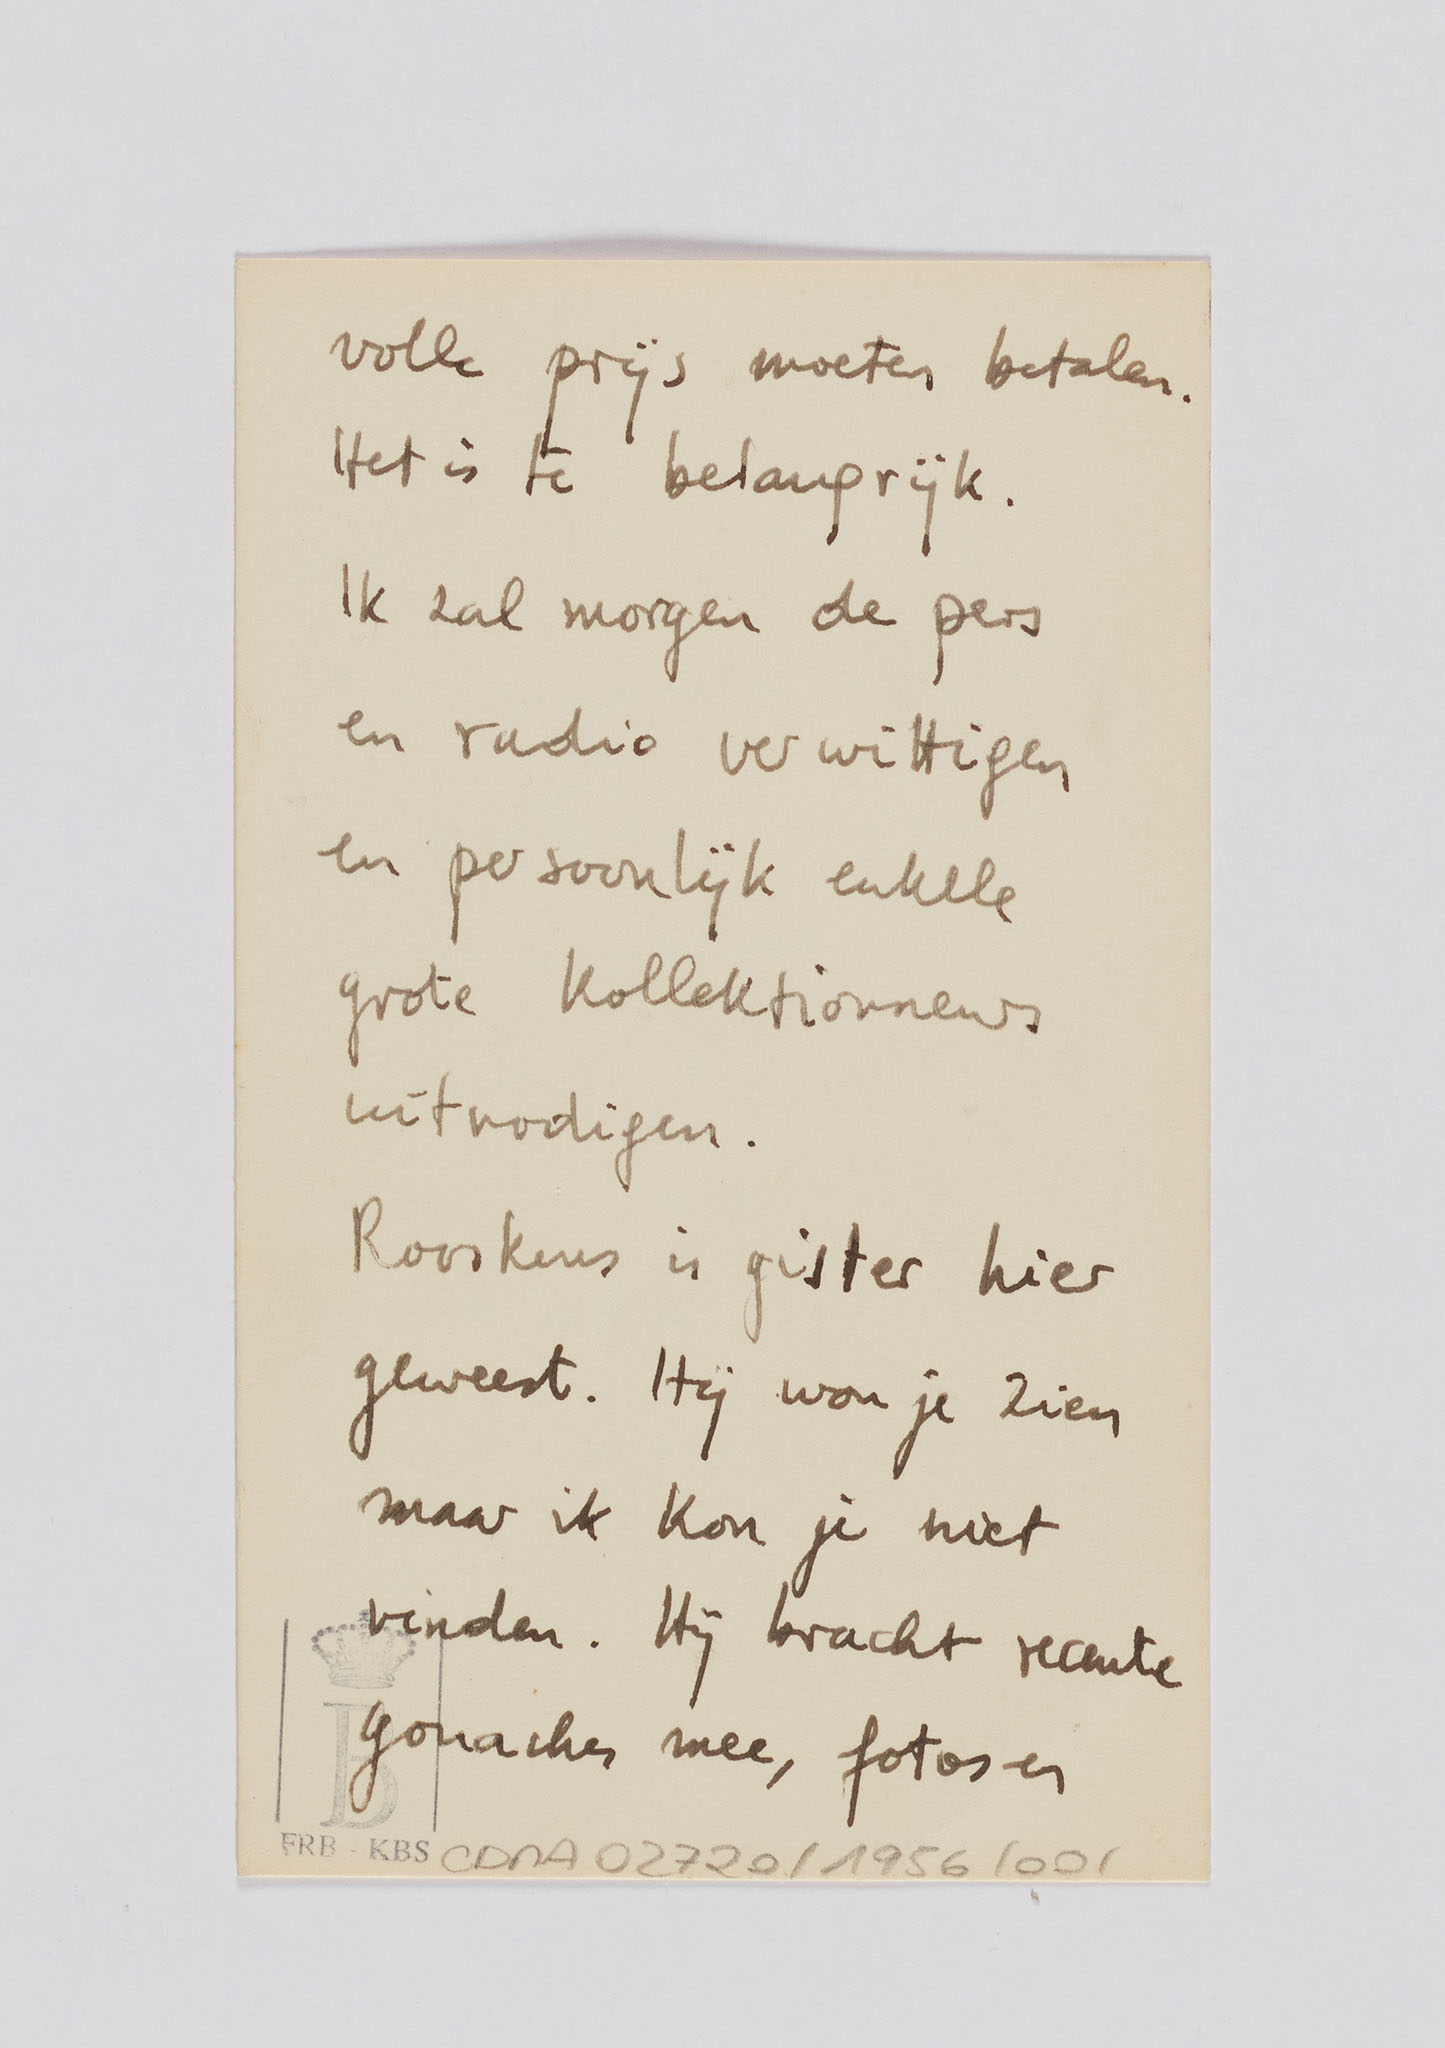 volle prijs moeten betalen.
Het is te belangrijk.
Ik zal morgen de pers
en radio verwittigen
en persoonlijk enkele
grote kollektionneurs
uitnodigen.
Rooskens is gister hier
geweest. Hij wou je zien
maar ik kon je niet
vinden. Hij bracht recente
gouaches mee, fotos en
B
FRB - KBS CDMA 02720/1956/001